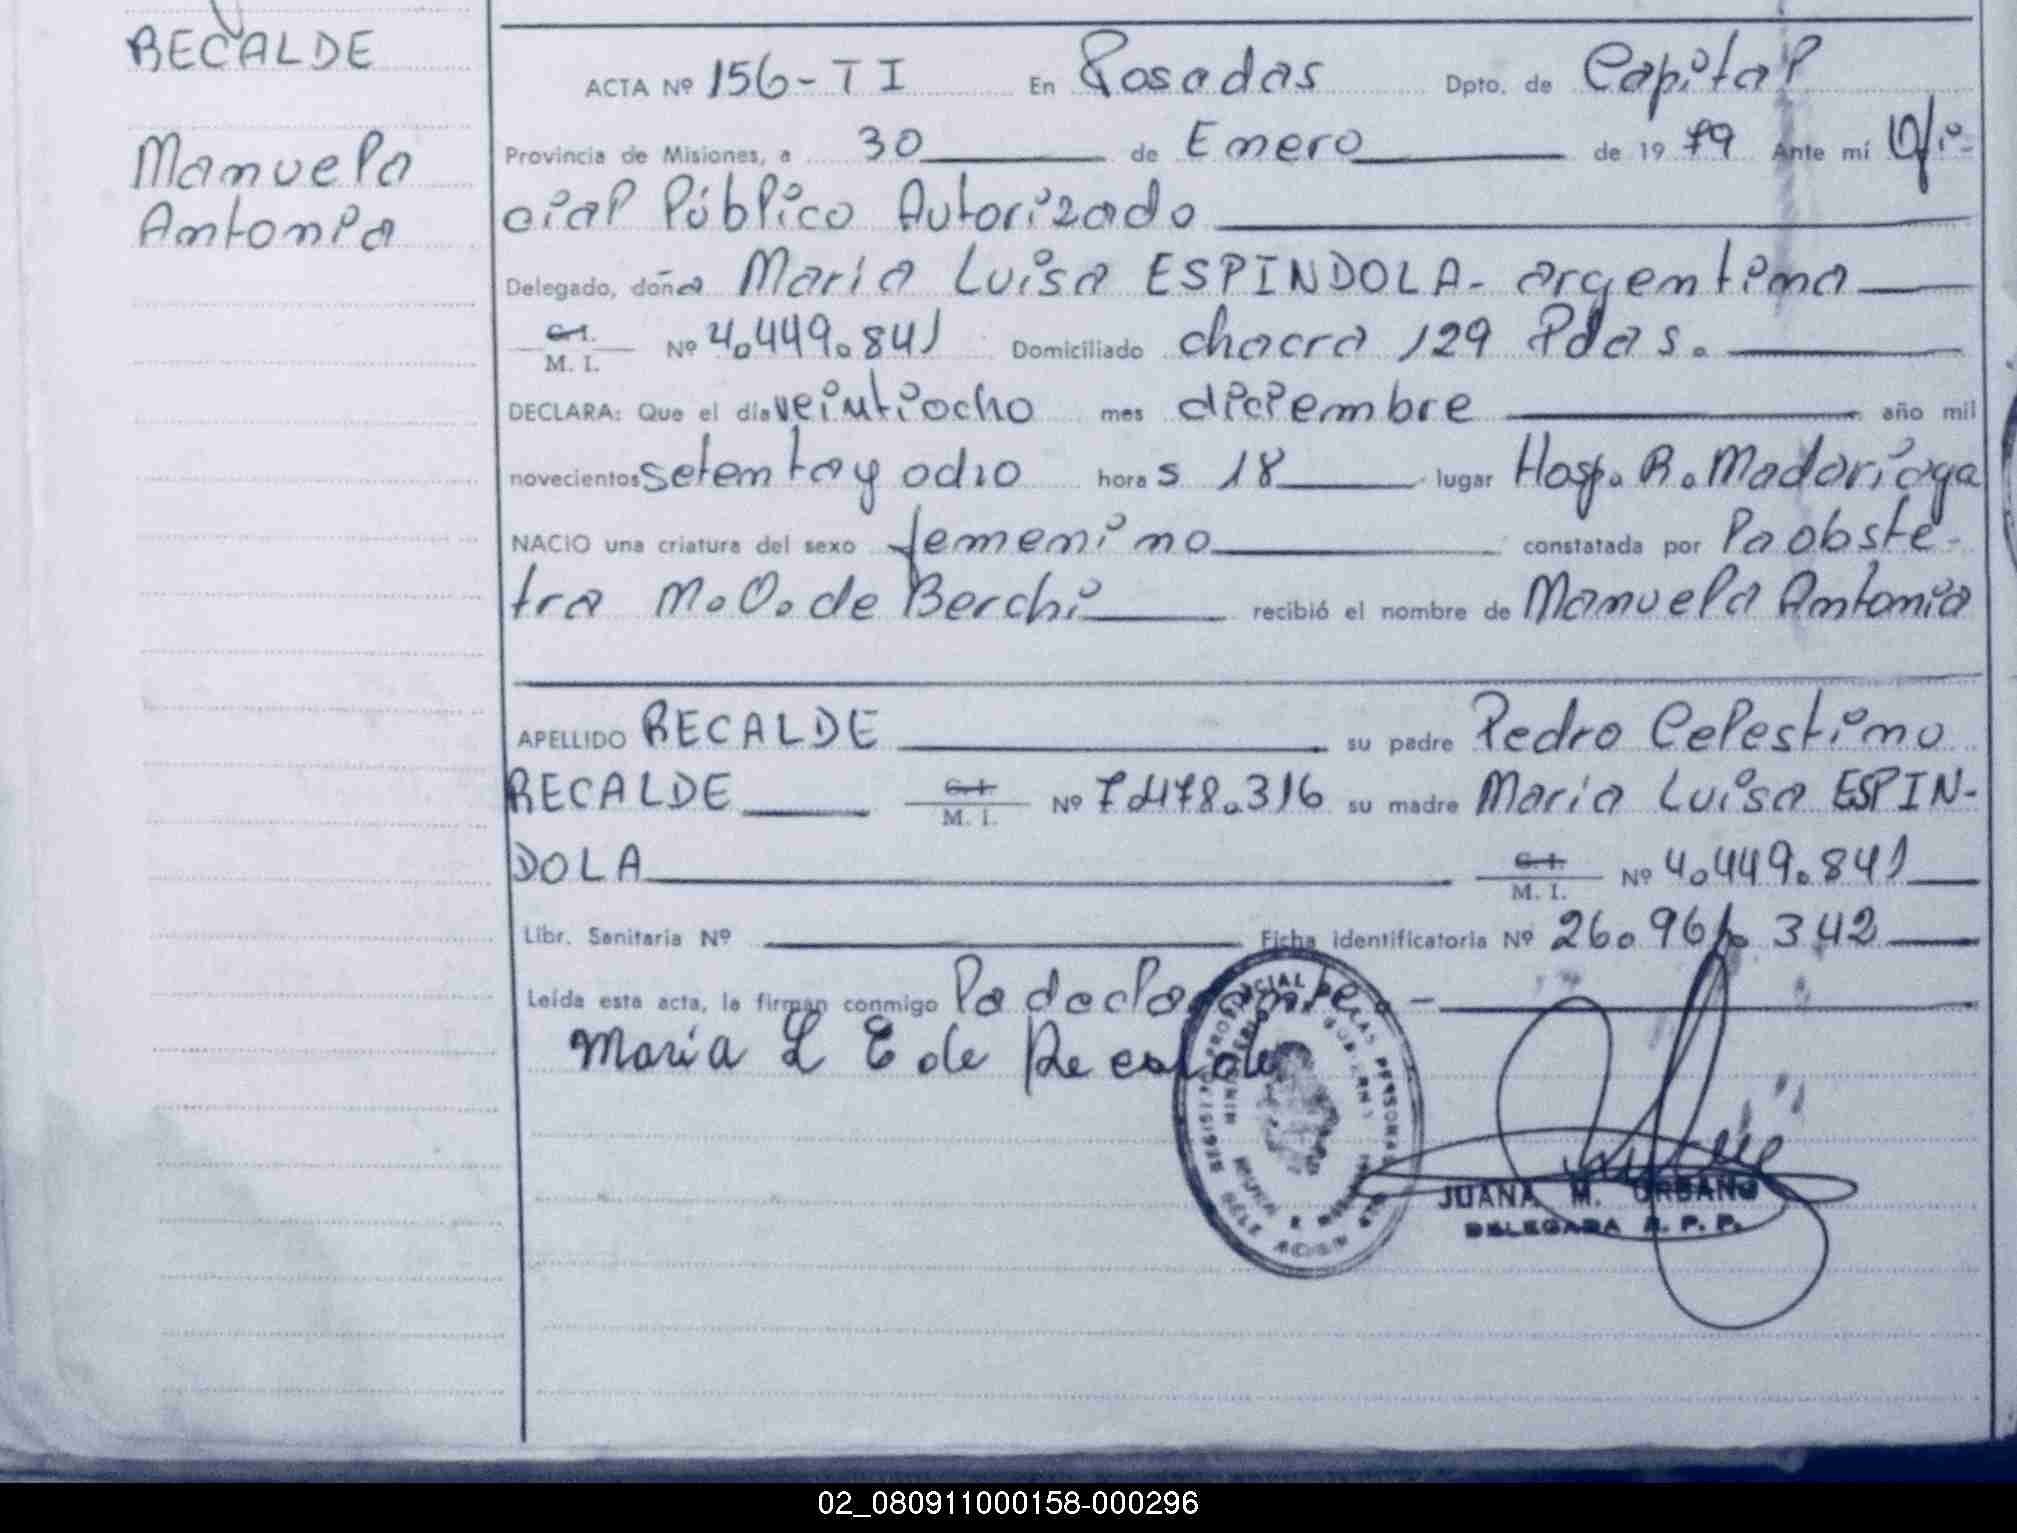 RECALDE
Manuela
Antonia
ACTA Nº 156-TI En Posadas Dpto. de Capital
Provincia de Misiones, a 30 de Enero de 1979 Ante mí Ofi-
cial Público Autorizado
Delegado, doña Maria Luisa ESPINDOLA- argentina
C. I. M. I. Nº 4.449.841 Domiciliado chacra 129 Pdas.
DECLARA: Que el día veintiocho mes diciembre año mil
novecientos setenta y ocho horas 18 lugar Hosp. R. Madariaga
NACIO una criatura del sexo femenino constatada por la obste-
tra M. O. de Berchi recibió el nombre de Manuela Antonia
APELLIDO RECALDE su padre Pedro Celestino
RECALDE C. I. M. I. Nº 7.478.316 su madre Maria Luisa ESPIN-
DOLA C. I. M. I. Nº 4.449.841
Libr. Sanitaria Nº Ficha identificatoria Nº 26.961.342
Leída esta acta, la firman conmigo la declarante -
Maria L E de Recalde
REGISTRO PROVINCIAL DE LAS PERSONAS
MINISTERIO DE GOBIERNO
JUANA M. URBANO
DELEGADA R. P. P.
02_080911000158-000296